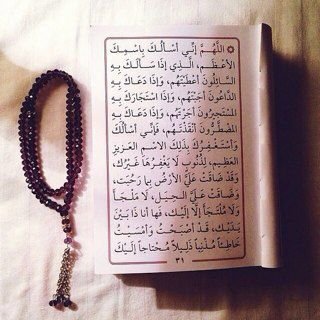 اَللّٰهُمَّ إِنِّي أَسْأَلُكَ بِاسْمِكَ
الْأَعْظَمِ، الَّذِي إِذَا سَأَلَكَ بِهِ
السَّائِلُونَ أَعْطَيْتَهُمْ، وَإِذَا دَعَاكَ بِهِ
الدَّاعُونَ أَجَبْتَهُمْ، وَإِذَا اسْتَجَارَكَ بِهِ
الْمُسْتَجِيرُونَ أَجَرْتَهُمْ، وَإِذَا دَعَاكَ بِهِ
الْمُضْطَرُّونَ أَنْقَذْتَهُمْ، فَإِنِّي أَسْأَلُكَ
وَأَسْتَغْفِرُكَ بِذٰلِكَ الْاِسْمِ الْعَزِيزِ
الْعَظِيمِ، لِذُنُوبٍ لَا يَغْفِرُهَا غَيْرُكَ،
وَقَدْ ضَاقَتْ عَلَيَّ الْأَرْضُ بِمَا رَحُبَتْ،
وَضَاقَتْ عَلَيَّ الْحِيَلُ، لَا مَلْجَأَ
وَلَا مُلْتَجَأَ إِلَّا إِلَيْكَ، فَهَا أَنَا ذَا بَيْنَ
يَدَيْكَ، قَدْ أَصْبَحْتُ وَأَمْسَيْتُ
خَاطِئاً مُذْنِباً ذَلِيلاً مُحْتَاجاً إِلَيْكَ
٣١